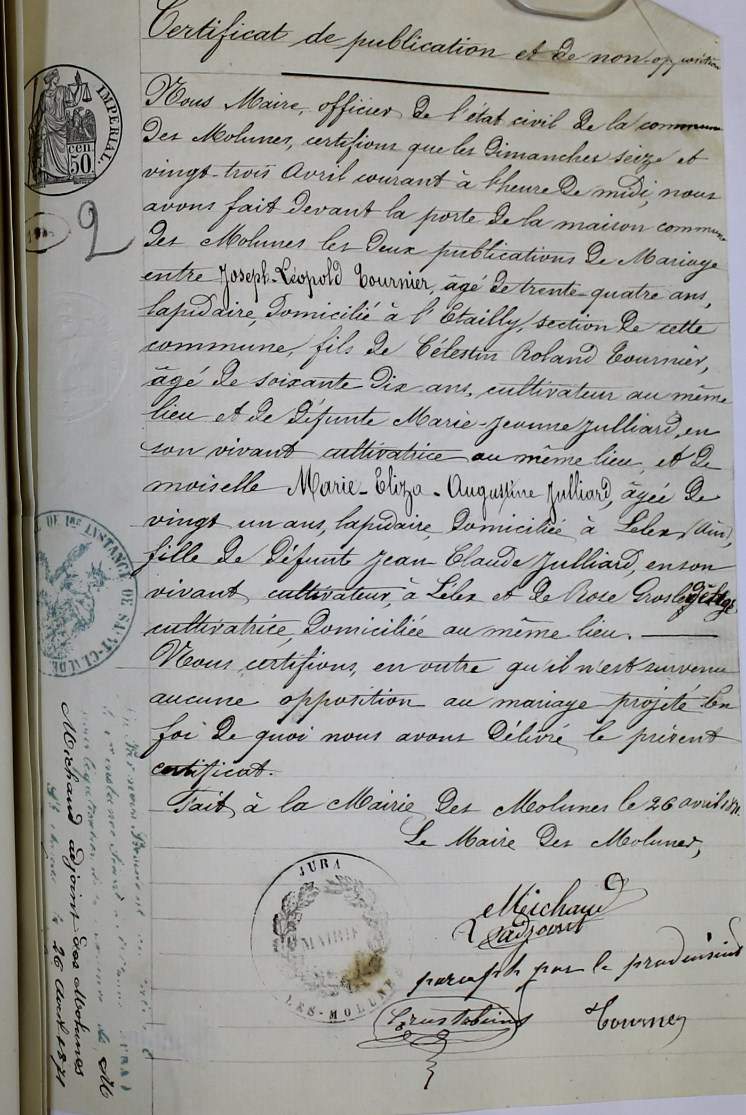 Certificat de publication et de non-opposition
Nous Maire, officier de l'état civil de la commune
des Molunes, certifions que les dimanches seize et
vingt-trois Avril courant à l'heure de midi, nous
avons fait devant la porte de la maison commune
des Molunes les deux publications de Mariage
entre Joseph-Léopold Tournier, âgé de trente-quatre ans,
lapidaire, domicilié à l'Etailly, section de cette
commune, fils de Célestin Roland Tournier,
âgé de soixante dix ans, cultivateur au même
lieu et de défunte Marie-Jeanne Julliard, en
son vivant cultivatrice au même lieu, et de
moiselle Marie-Eliza-Augustine Julliard, âgée de
vingt un ans, lapidaire, domiciliée à Lelex (Ain),
fille de défunte Jean-Claude Julliard, en son
vivant cultivateur, à Lelex et de Rose
cultivatrice, domiciliée au même lieu.
Nous certifions, en outre qu'il n'est survenu
aucune opposition au mariage projeté. En
foi de quoi nous avons délivré le présent
certificat.
Fait à la Mairie des Molunes le 26 avril 1871.
Le Maire des Molunes,
Michaud
adjoint
paraph par le
Tournier
IMPERIAL.
50 cen
2
DE 1re INSTANCE DE SAINT-CLAUDE
JURA
MAIRIE
LES-MOLUNES
Michaud adjoint des Molunes
26 Avril 1871